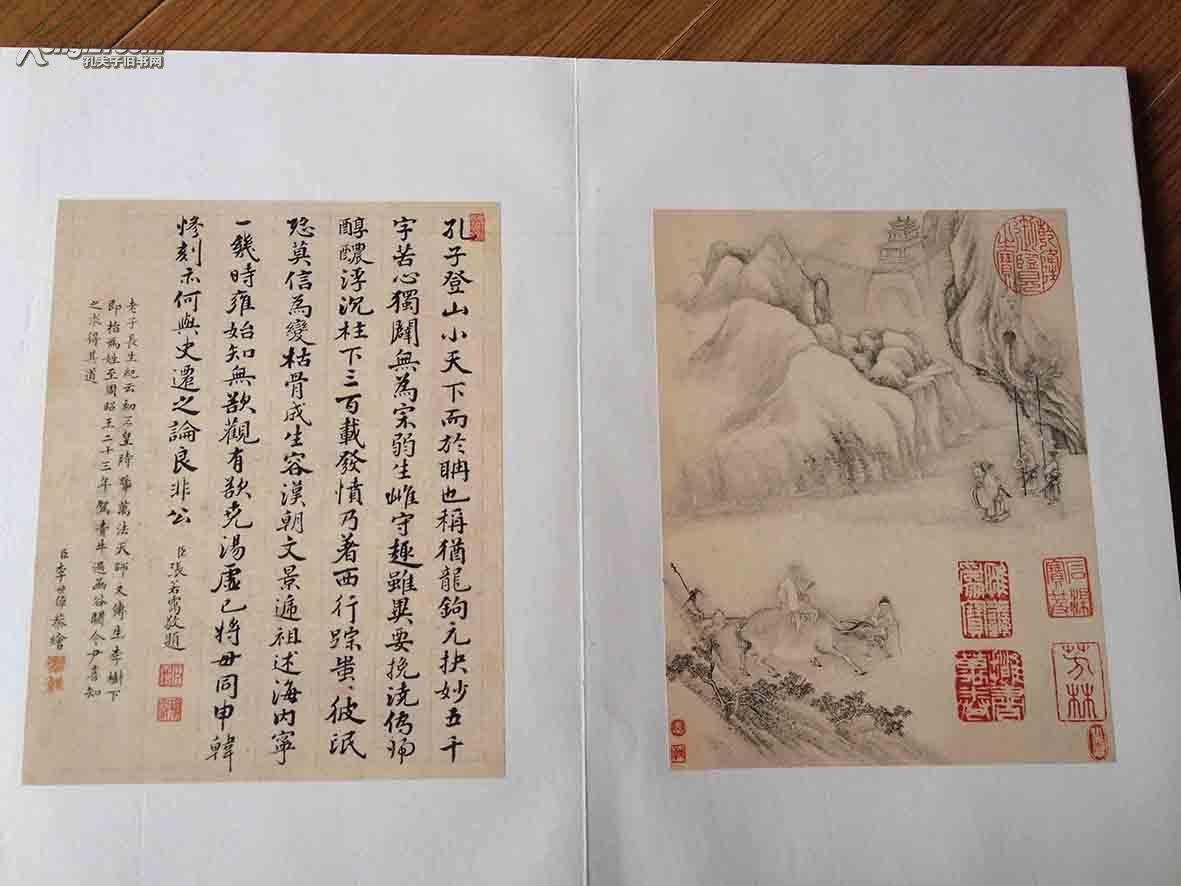 孔夫子旧书网
孔子登山小天下而於聃也稱猶龍鉤元抉妙五千
字苦心獨闢無為宗弱生雌守趣雖異要挽澆偽歸
醇醲浮沉柱下三百載發憤乃著西行踪蚩、彼氓
恐莫信為變枯骨成生容漢朝文景遞祖述海內寧
一幾時雍始知無欲觀有欲堯湯虛已將毋同申韓
慘刻示何與史遷之論良非公
臣張若靄敬題
老子長生紀云初三皇時號萬法天師又傳生李樹下
即指為姓至周昭王二十三年駕青牛過函谷關令尹喜知
之求得其道
臣李世倬恭繪
芳林